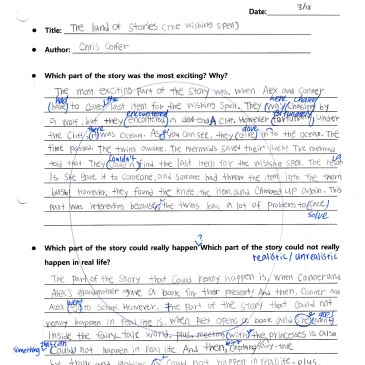 Date: 3/18
• Title: The land of stories (The wishing spell)
• Author: Chris Colfer
• Which part of the story was the most exciting? Why?
The most exciting part of the story was, when Alex and Conner
had the were chased
have to collect last item for the wishing spell. They was chasing by
encountered fortunately
a wolf, but they encountered a dead-end A clift. However, under
there dive
the cliff, was ocean. As you can see, they into the ocean. The
time passed. The twins awoke. The mermaids saved their lives! The mermaid
couldn't
told that They find the last item for the wishing spell. The reason
is She gave it to someone, and someone had threw the item into the thorn
bush! However, they found the knife, the horn, and climbed up again. This
part was interesting because the twins how a lot of problems to
solve
• Which part of the story could really happen? Which part of the story could not really
happen in real life? realistic/unrealistic
The part of the story that could really happen is, when Conner and
Alex's grandmother gave a book for their present! And then, Conner and
went
Alex to school. However, the part of the story that could not
really happen in real life is, when Alex opens a book and
inside the fairy-tale world. plus, meeting with the princesses is also
Something that can
could not happen in real life And then, fairy-tale
could not happen in real life. plus